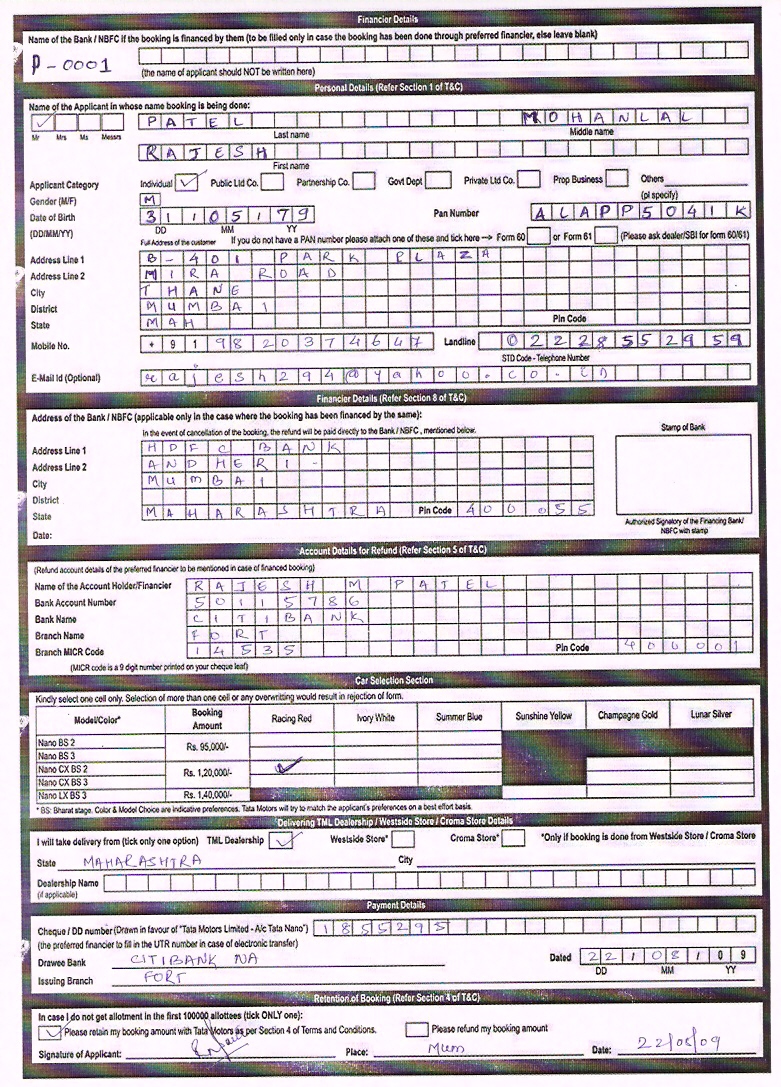 Financier Details
Name of the Bank / NBFC if the booking is financed by them (to be filled only in case the booking has been done through preferred financier, else leave blank)
P-0001
(the name of applicant should NOT be written here)
Personal Details (Refer Section 1 of T&C)
Name of the Applicant in whose name booking is being done:
PATEL MOHANLAL
Mr Mrs Ms Messrs Last name Middle name
RAJESH
First name
Applicant Category Individual Public Ltd Co. Partnership Co. Govt Dept Private Ltd Co. Prop Business Others
(pl specify)
Gender (M/F) M
Date of Birth 31/05/79 Pan Number ALAPP5041K
(DD/MM/YY) DD MM YY
Full Address of the customer If you do not have a PAN number please attach one of these and tick here Form 60 or Form 61 (Please ask dealer/SBI for form 60/61)
Address Line 1 B-401 PARK PLAZA
Address Line 2 MIRA ROAD
City THANE
District MUMBAI
State MAH Pin Code
Mobile No. +91 9820374647 Landline 02228552959
STD Code - Telephone Number
E-Mail Id (Optional) rajesh294@yahoo.co.in
Financier Details (Refer Section 8 of T&C)
Address of the Bank / NBFC (applicable only in the case where the booking has been financed by the same):
In the event of cancellation of the booking, the refund will be paid directly to the Bank / NBFC, mentioned below. Stamp of Bank
Address Line 1 HDFC BANK
Address Line 2 ANDHERI -
City MUMBAI
District
State MAHARASHTRA Pin Code 400 055
Authorized Signatory of the Financing Bank/
NBFC with stamp
Date:
Account Details for Refund (Refer Section 5 of T&C)
(Refund account details of the preferred financier to be mentioned in case of financed booking)
Name of the Account Holder/Financier RAJESH M PATEL
Bank Account Number 50115786
Bank Name CITIBANK
Branch Name FORT
Branch MICR Code 14535 Pin Code 400001
(MICR code is a 9 digit number printed on your cheque leaf)
Car Selection Section
Kindly select one cell only. Selection of more than one cell or any overwritting would result in rejection of form.
Model/Color* Booking Amount Racing Red Ivory White Summer Blue Sunshine Yellow Champagne Gold Lunar Silver
Nano BS 2
Rs. 95,000/-
Nano BS 3
Nano CX BS 2
Rs. 1,20,000/-
Nano CX BS 3
Nano LX BS 3 Rs. 1,40,000/-
* BS: Bharat stage. Color & Model Choice are indicative preferences. Tata Motors will try to match the applicant's preferences on a best effort basis.
Delivering TML Dealership / Westside Store / Croma Store Details
I will take delivery from (tick only one option) TML Dealership Westside Store* Croma Store* *Only if booking is done from Westside Store / Croma Store
State MAHARASHTRA City
Dealership Name
(if applicable)
Payment Details
Cheque / DD number (Drawn in favour of "Tata Motors Limited - A/c Tata Nano") 1855295
(the preferred financier to fill in the UTR number in case of electronic transfer)
Drawee Bank CITIBANK NA Dated 22/08/09
DD MM YY
Issuing Branch FORT
Retention of Booking (Refer Section 4 of T&C)
In case I do not get allotment in the first 100000 allottees (tick ONLY one):
Please retain my booking amount with Tata Motors as per Section 4 of Terms and Conditions. Please refund my booking amount
Signature of Applicant: Place: Mum Date: 22/08/09